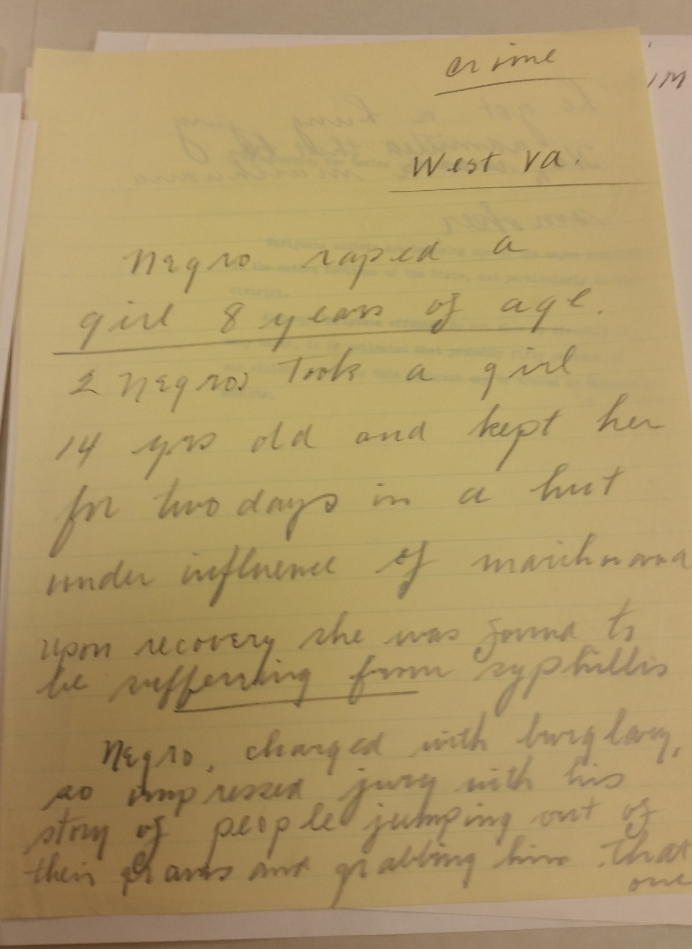 crime
West Va.
Negro raped a
girl 8 years of age.
2 Negros Took a girl
14 yrs old and kept her
for two days in a hut
under influence of marihuana
upon recovery she was found to
be suffering from syphillis
Negro, charged with burglary,
so impressed jury with his
story of people jumping out of
their graves and grabbing him that
one